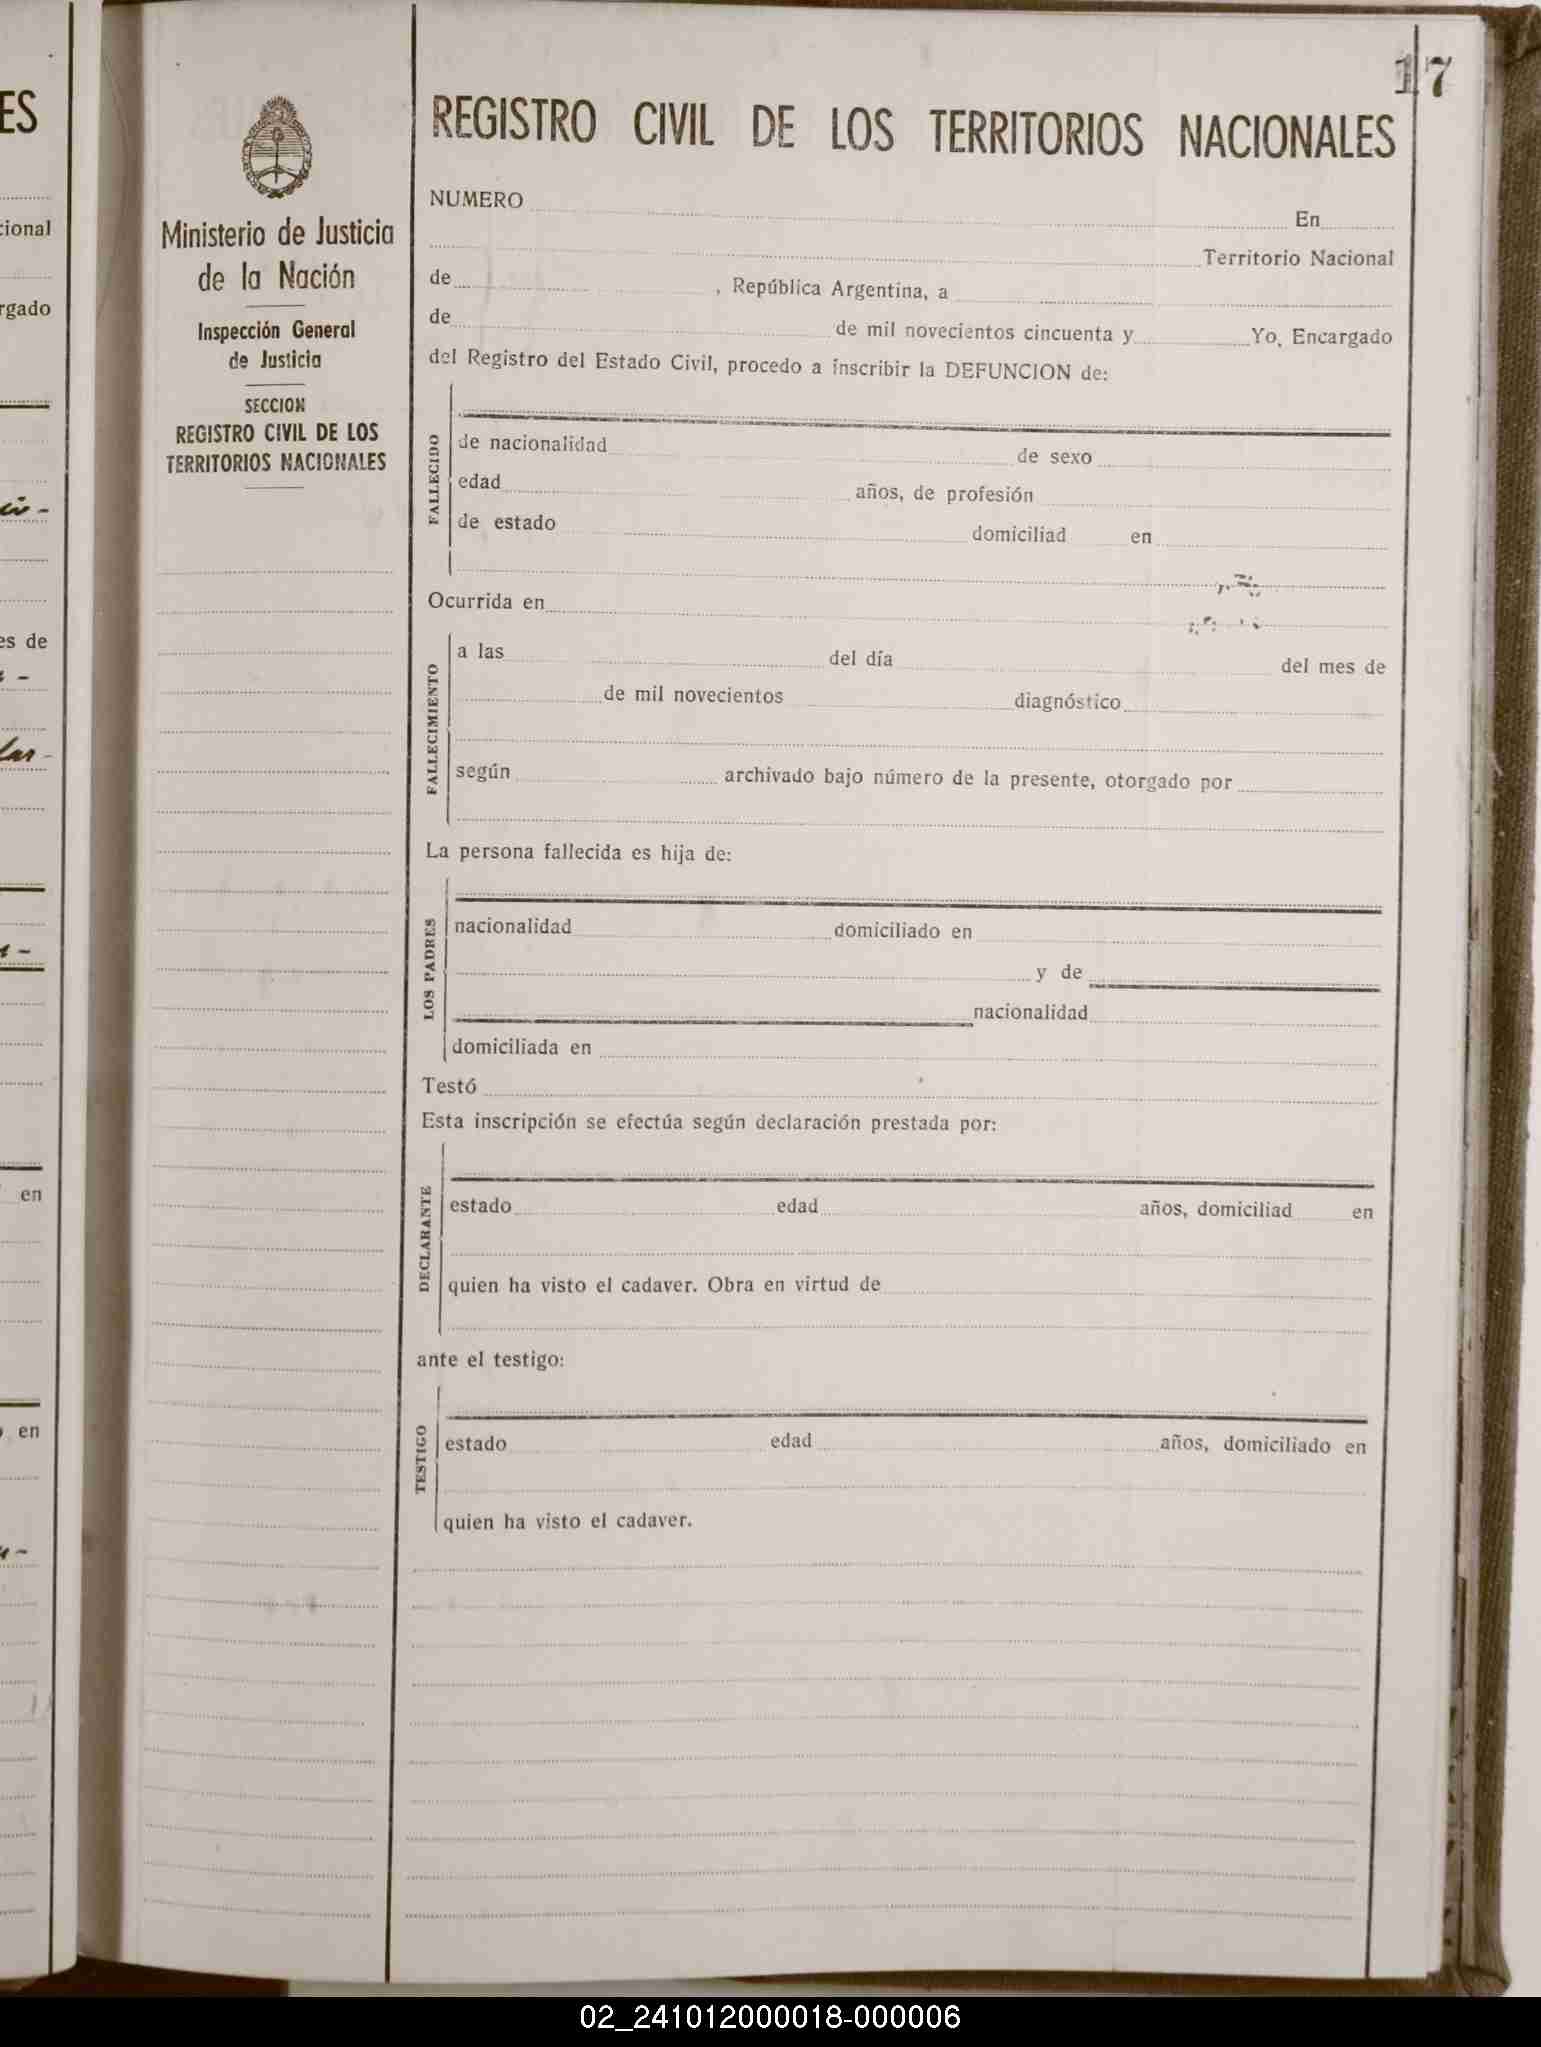 17
REGISTRO CIVIL DE LOS TERRITORIOS NACIONALES
Ministerio de Justicia
de la Nación
Inspección General
de Justicia
SECCION
REGISTRO CIVIL DE LOS
TERRITORIOS NACIONALES
NUMERO En
Territorio Nacional
de , República Argentina, a
de de mil novecientos cincuenta y Yo, Encargado
del Registro del Estado Civil, procedo a inscribir la DEFUNCION de:
FALLECIDO
de nacionalidad de sexo
edad años, de profesión
de estado domiciliad en
Ocurrida en
FALLECIMIENTO
a las del día del mes de
de mil novecientos diagnóstico
según archivado bajo número de la presente, otorgado por
La persona fallecida es hija de:
LOS PADRES
nacionalidad domiciliado en
y de
nacionalidad
domiciliada en
Testó
Esta inscripción se efectúa según declaración prestada por:
DECLARANTE
estado edad años, domiciliad en
quien ha visto el cadaver. Obra en virtud de
ante el testigo:
TESTIGO
estado edad años, domiciliado en
quien ha visto el cadaver.
ES
cional
rgado
es de
en
en
02_241012000018-000006